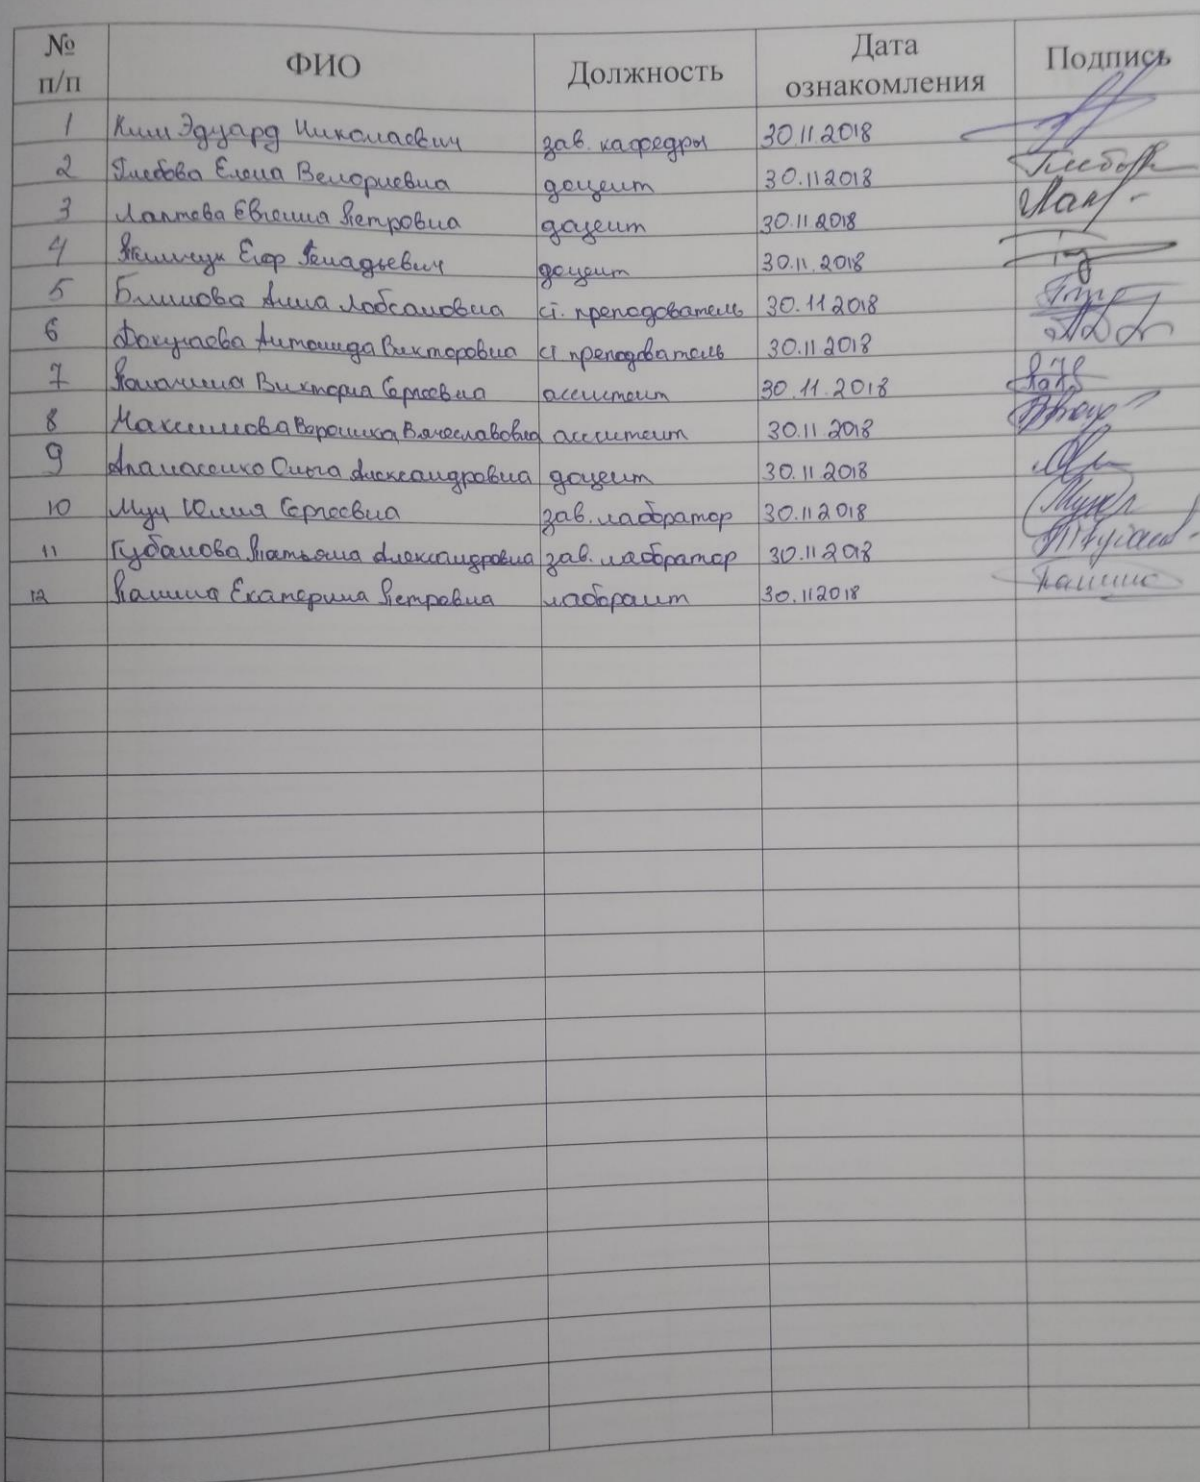 № п/п ФИО Должность Дата ознакомления Подпись
1 Ким Эдуард Николаевич зав. кафедры 30.11.2018
2 Глебова Елена Велориевна доцент 30.11.2018
3 Лаптева Евгения Петровна доцент 30.11.2018
4 Тимчук Егор Генадьевич доцент 30.11.2018
5 Блинова Анна Лобсановна ст. преподователь 30.11.2018
6 Докучаева Антонида Викторовна ст преподователь 30.11.2018
7 Виктория Сергеевна ассистент 30.11.2018
8 Максимова Вероника Вячеславовна ассистент 30.11.2018
9 Апанасенко Ольга Александровна доцент 30.11.2018
10 Муц Юлия Сергеевна зав. лаборатор 30.11.2018
11 Губанова Татьяна Александровна зав. лаборатор 30.11.2018
12 Панина Екатерина Петровна лаборант 30.11.2018